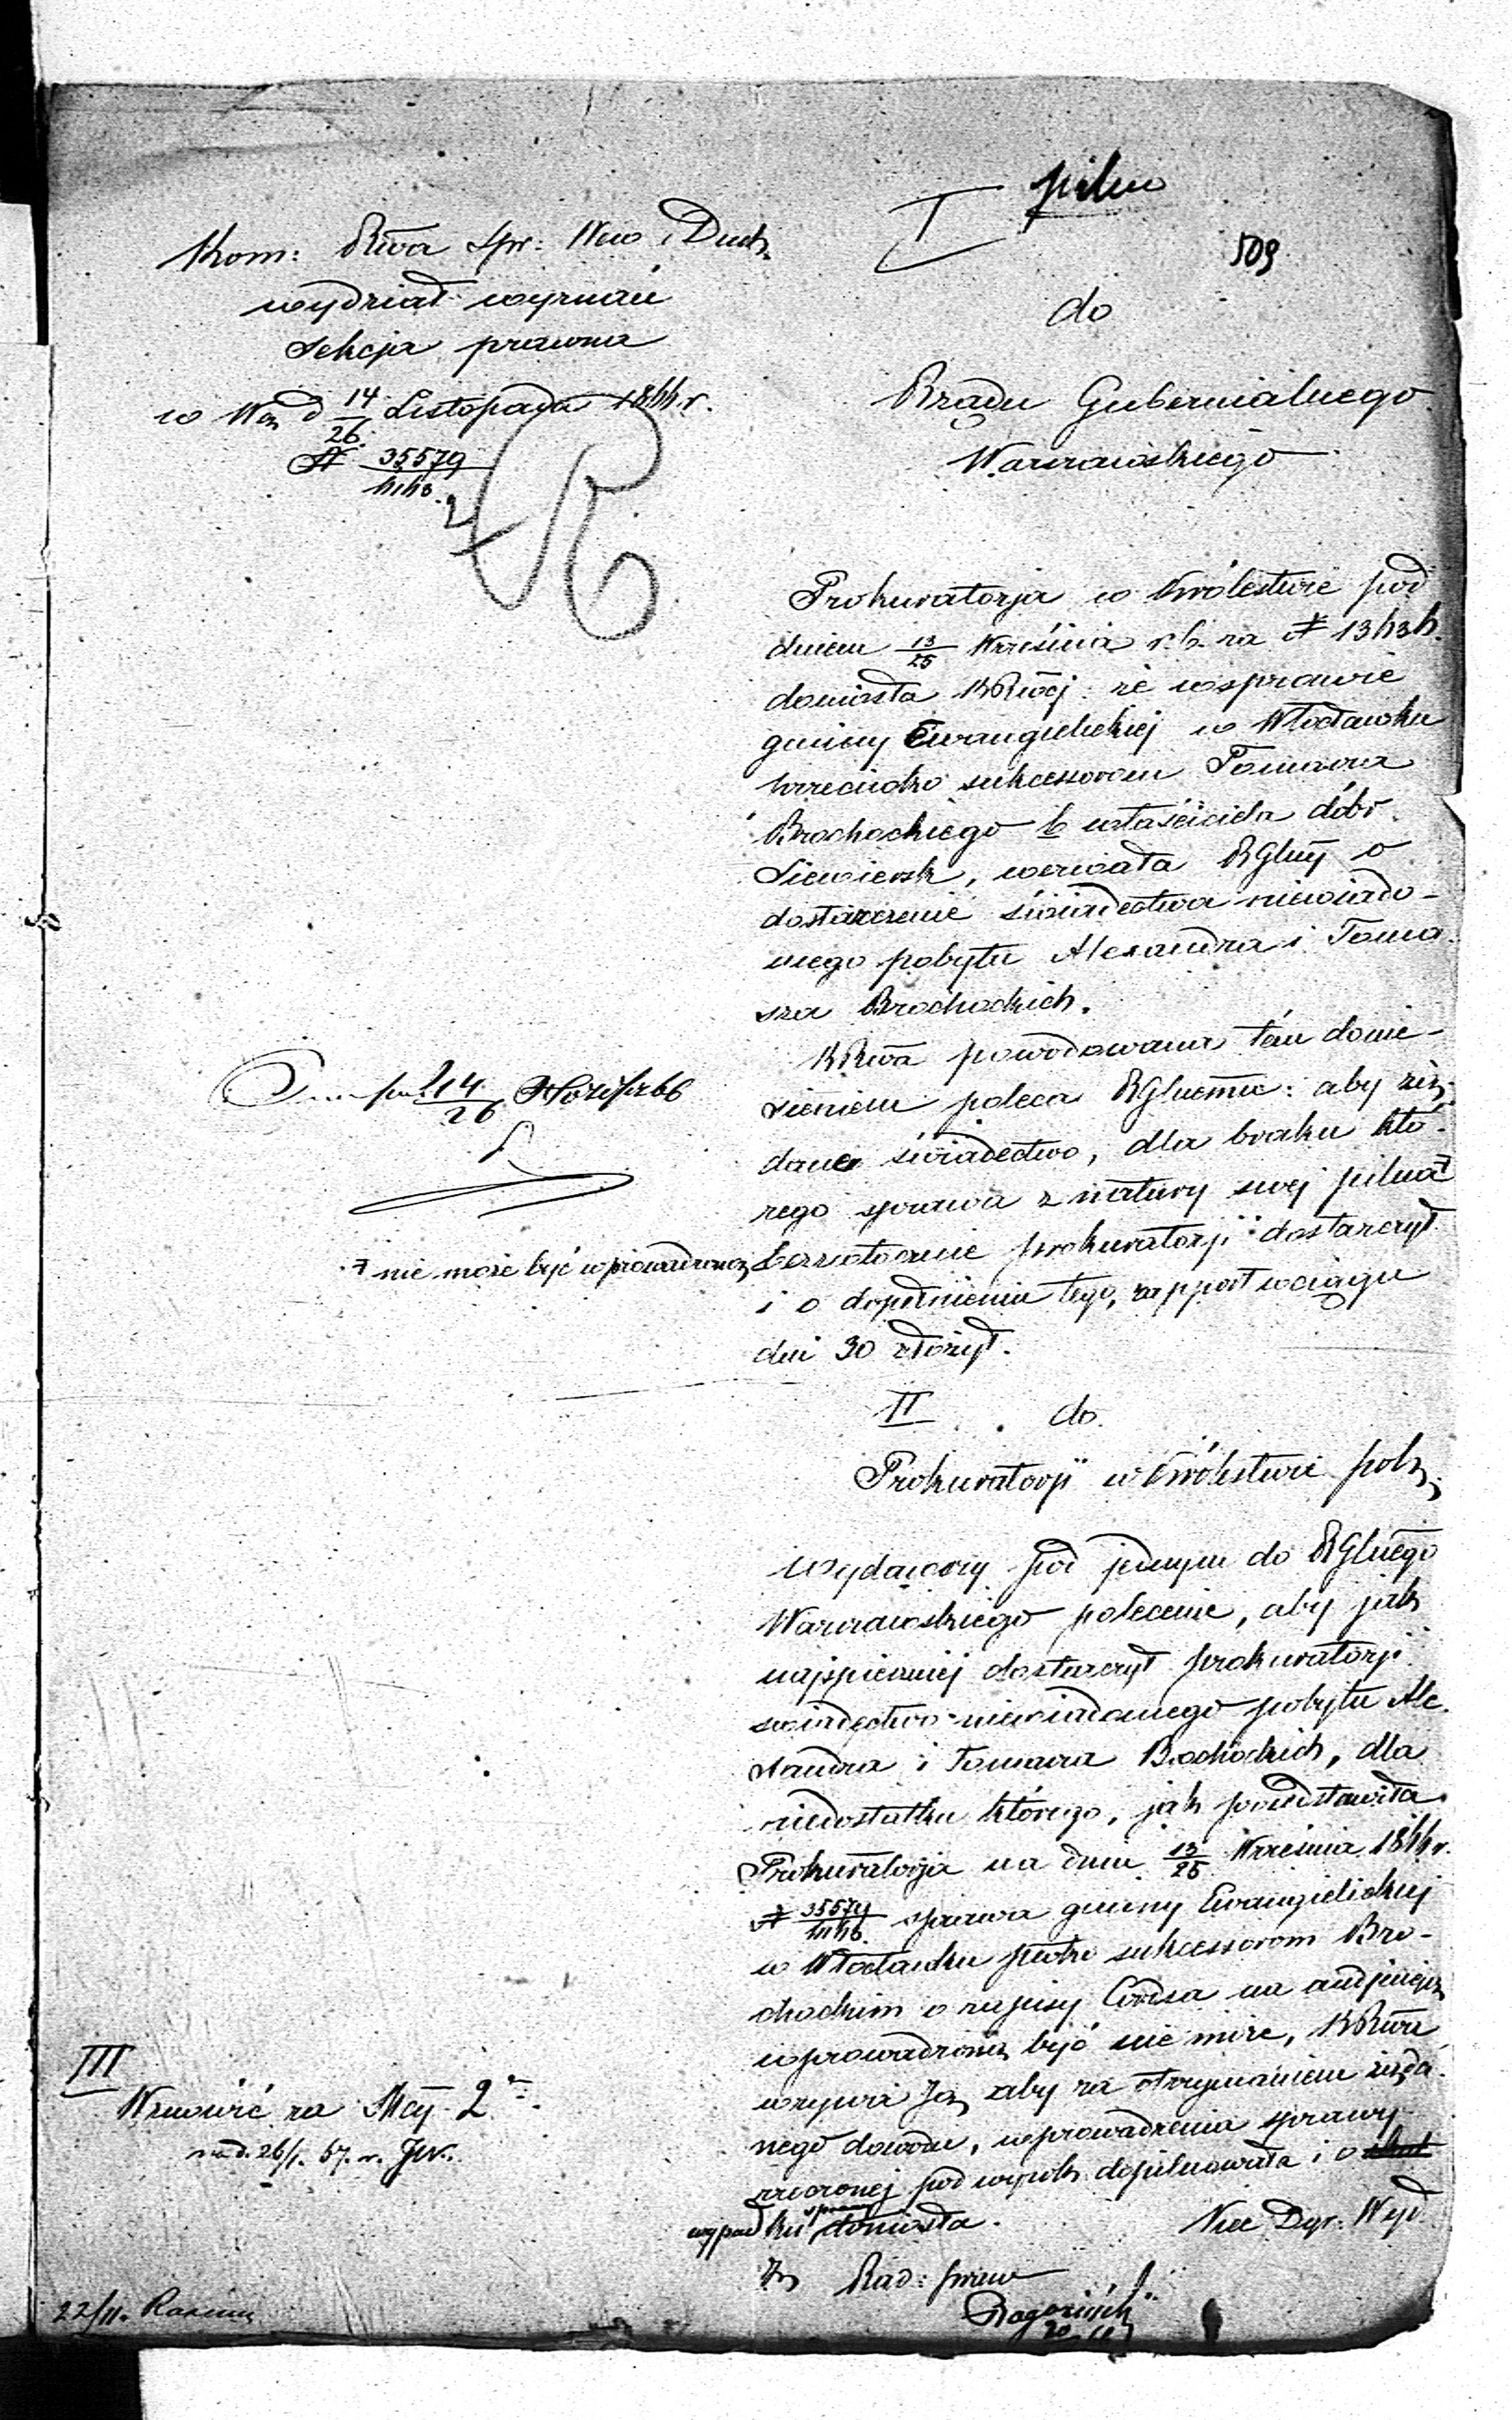 pilno
I
509
Kom: Rwa Spr: Wew i Duch
wydział wyznań
Sekcja prawna
w Wa d 14/26 Listopada 1866 r.
N 35579/
do
Rządu Gubernialnego
Warszawskiego
Prokuratorja w Królestwie pod
dniem 13/25 Września r. b. za N 13434
doniosła KRwej: że w sprawie
gminy Ewangielickiej w Włocławku
przeciwko sukcessorom Tomasza
Brochockiego b właściciela dóbr
Siewiersk, wezwała RGlny o
dostarczenie świadectwa niewiado-
mego pobytu Alexandra i Toma-
sza Brochockich.
KRwa powodowana tém donie-
sieniem poleca RGlnemu: aby żą-
dane świadectwo, dla braku któ-
rego sprawa z natury swej pilna
bezzwłocznie prokuratorji dostarczył
i o dopełnieniu tego, rapport w ciągu
dni 30 złożył.
14/26
66
nie może być wprowadzoną
II do
Prokuratorji w Królestwie pols
Wydawszy pod jednym do RGlnego
Warszawskiego polecenie, aby jak
najspieszniej dostarczył prokuratorji
świadectwo niewiadomego pobytu Ale
xandra i Tomasza Brochockich, dla
niedostatku którego, jak przedstawiła
Prokuratorja na dniu 13/25 Września 1866 r.
N 35579/ sprawa gminy Ewangielickiej
w Włocławku pwko sukcessorom Bro-
chockim o zapisy na audjencją
wprowadzoną być nie może, KRwa
wzywa Ją, aby za otrzymaniem żąda-
nego dowodu, wprowadzenia sprawy
rzeczonej pod wyrok dopilnowała i o
wypadku sprawy doniosła.
III
Wznowić za Mcy 2
na d. 26/1. 67. r.
Vice Dyr: Wyd
Rad: praw
22/11.